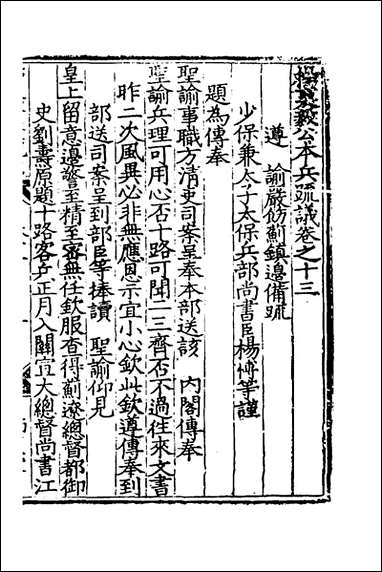 楊襄毅公本兵疏議卷之十三
遵 諭嚴飭薊鎮邊備疏
少保兼太子太保兵部尚書臣楊博等謹
題為傳奉
聖諭事職方清吏司案呈奉本部送該 內閣傳奉
聖諭兵理可用心否十路可聞二三齊否不過往來文書
昨二次風異必非無應恩示宜小心欽此欽遵傳奉到
部送司案呈到部臣等捧讀 聖諭仰見
皇上留意邊警至精至審無任欽服查得薊遼總督都御
史劉燾原題十路客兵正月入關宣大總督尚書江